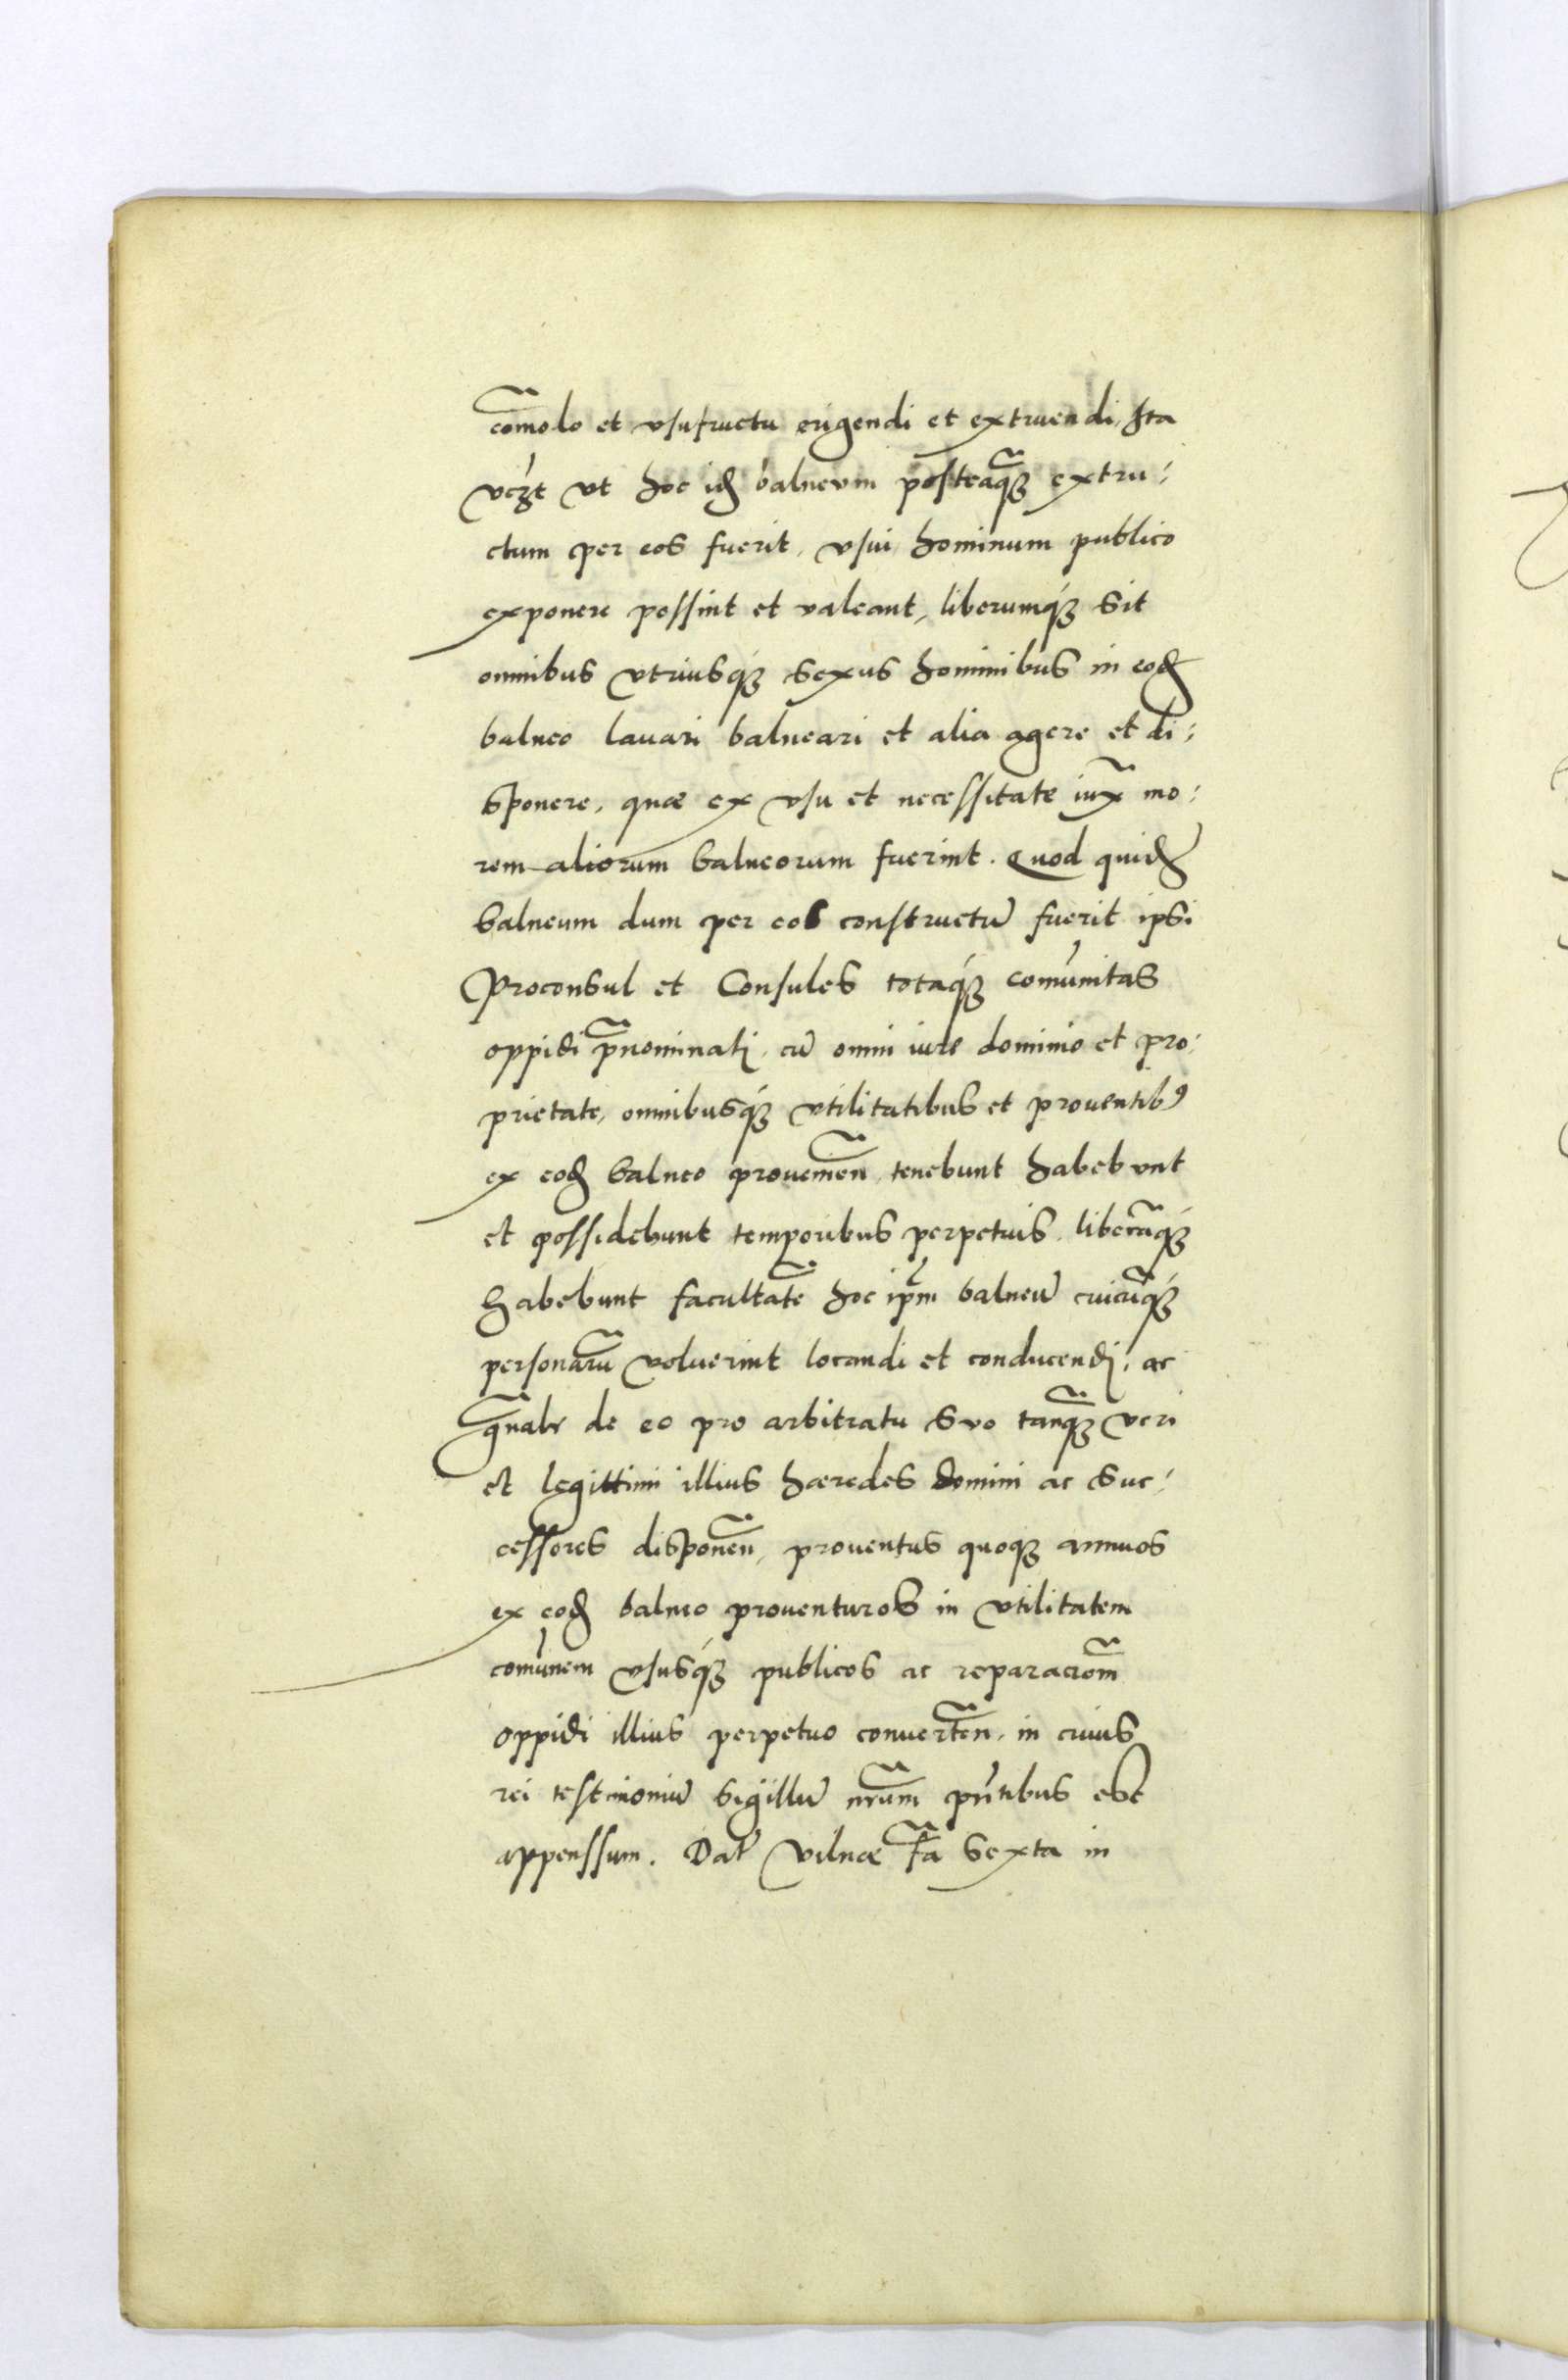 com̃odo et vsufructu erigendi et extruendi, Ita
vcꝫt vt hoc idꝫ balneum posteaq̃ꝫ extru:
ctum per eos fuerit, vsui hominum publico
exponere possint et valeant, liberumqꝫ sit
omnibus vtriusqꝫ sexus hominibus in eodꝫ
balneo lauari balneari et alia agere et di:
sponere, quæ ex vsu et necessitate iux̃ mo:
rem aliorum balneorum fuerint. Quod quidꝫ
balneum dum per eos constructũ fuerit ipsi
Proconsul et Consules totaqꝫ comũnitas
oppidi p̃nominati, cũ omni iure dominio et pro:
prietate, omnibusqꝫ vtilitatibus et prouentibꝰ
ex eodꝫ balneo prouenieñ, tenebunt habebunt
et possidebunt temporibus perpetuis, liberãqꝫ
habebunt facultatẽ hoc ip̃m balneũ cuicũqꝫ
personarũ voluerint locandi et conducendi, ac
gñalr de eo pro arbitratu suo tanq̃ꝫ veri
et legittimi illius hæredes domini ac suc:
cessores disponeñ, prouentus quoqꝫ annuos
ex eodꝫ balneo prouenturos in vtilitatem
comũnem vsusqꝫ publicos ac reparaciom̃
oppidi illius perpetuo conuerteñ, in cuius
rei testimoniũ sigillũ nrũm pñtibus est
appenssum. Datꝭ Vilnæ fã sexta in